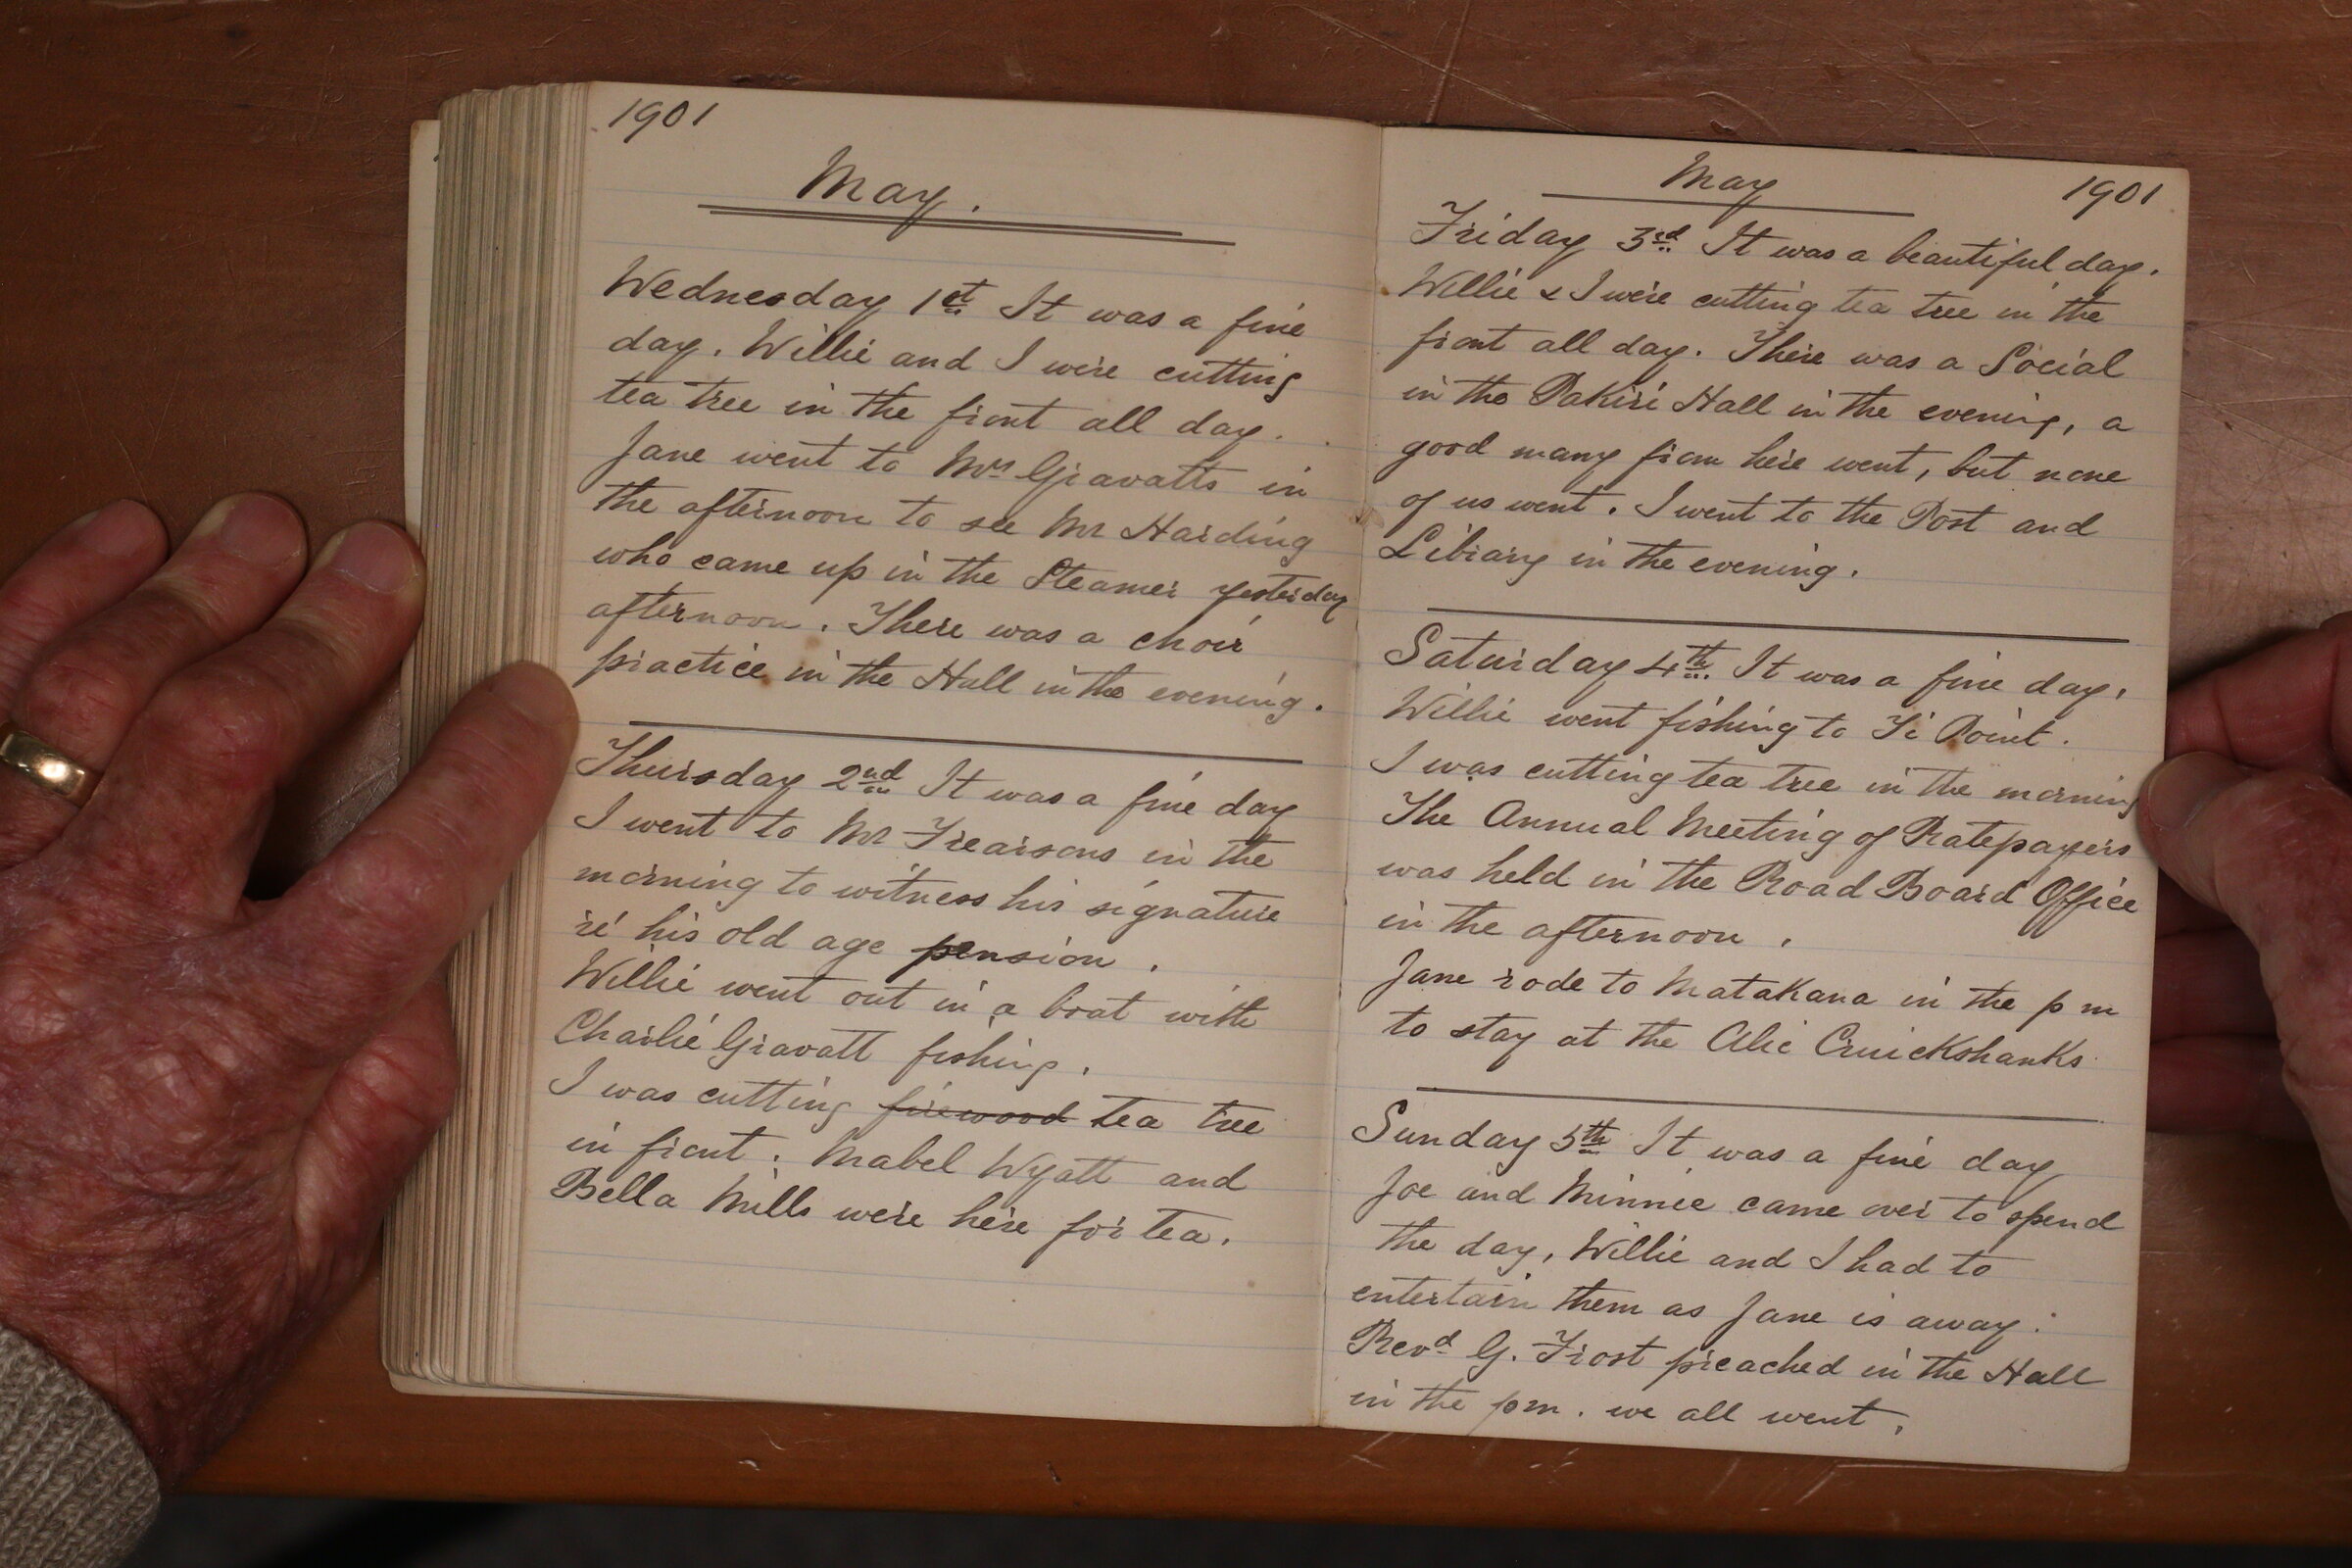 1901
May.
Wednesday 1st It was a fine
day. Willie and I were cutting
tea tree in the front all day.
Jane went to Mrs Gravatts in
the afternoon to see Mr Harding
who came up in the Steamer yesterday
afternoon. There was a choir
practice in the Hall in the evening.
Thursday 2nd It was a fine day
I went to Mr Frearsons in the
morning to witness his signature
re his old age pension.
Willie went out in a boat with
Charlie Gravatt fishing.
I was cutting firewood tea tree
in front. Mabel Wyatt and
Bella Mills were here for tea.
May 1901
Friday 3rd It was a beautiful day.
Willie & I were cutting tea tree in the
front all day. There was a Social
in the Pakiri Hall in the evening, a
good many from here went, but none
of us went. I went to the Post and
Library in the evening.
Saturday 4th It was a fine day,
Willie went fishing to Ti Point.
I was cutting tea tree in the morning
The Annual Meeting of Ratepayers
was held in the Road Board Office
in the afternoon.
Jane rode to Matakana in the pm
to stay at the Alic Cruickshanks
Sunday 5th It was a fine day
Joe and Minnie came over to spend
the day, Willie and I had to
entertain them as Jane is away.
Revd G. Frost preached in the Hall
in the pm. we all went.